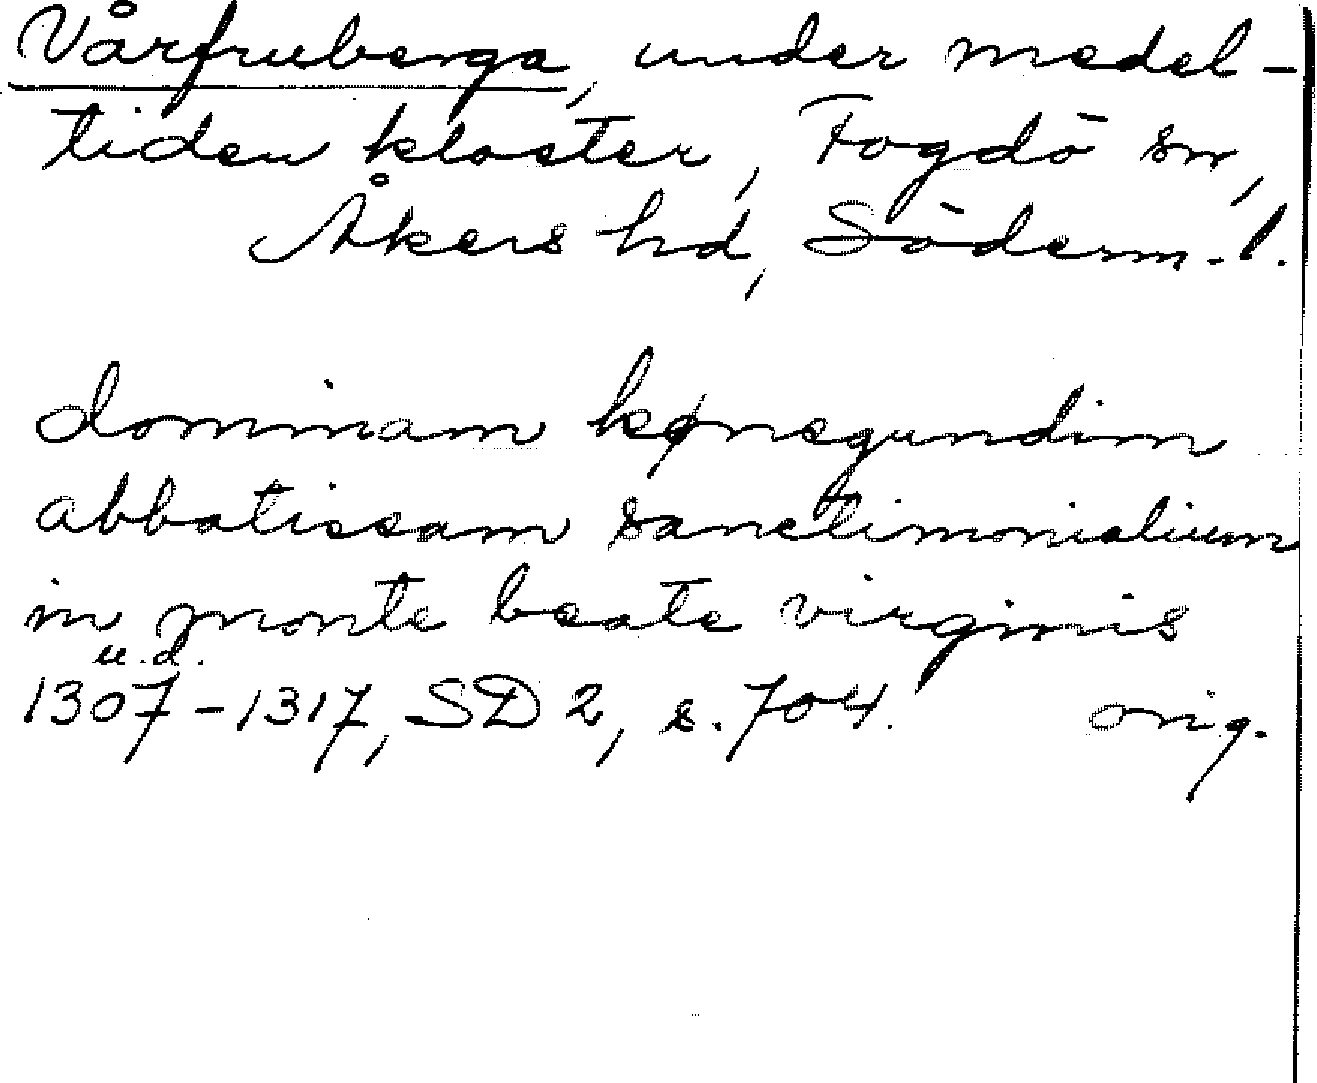 Vårfruberga, under medel-
tiden kloster, Fogdö sn,
Åkers hd, Söderm. l.
dominam kønegundim
abbatissam sanctimonialium
in monte beate virginis
u.d.
1307-1317, SD 2, s. 704. orig.